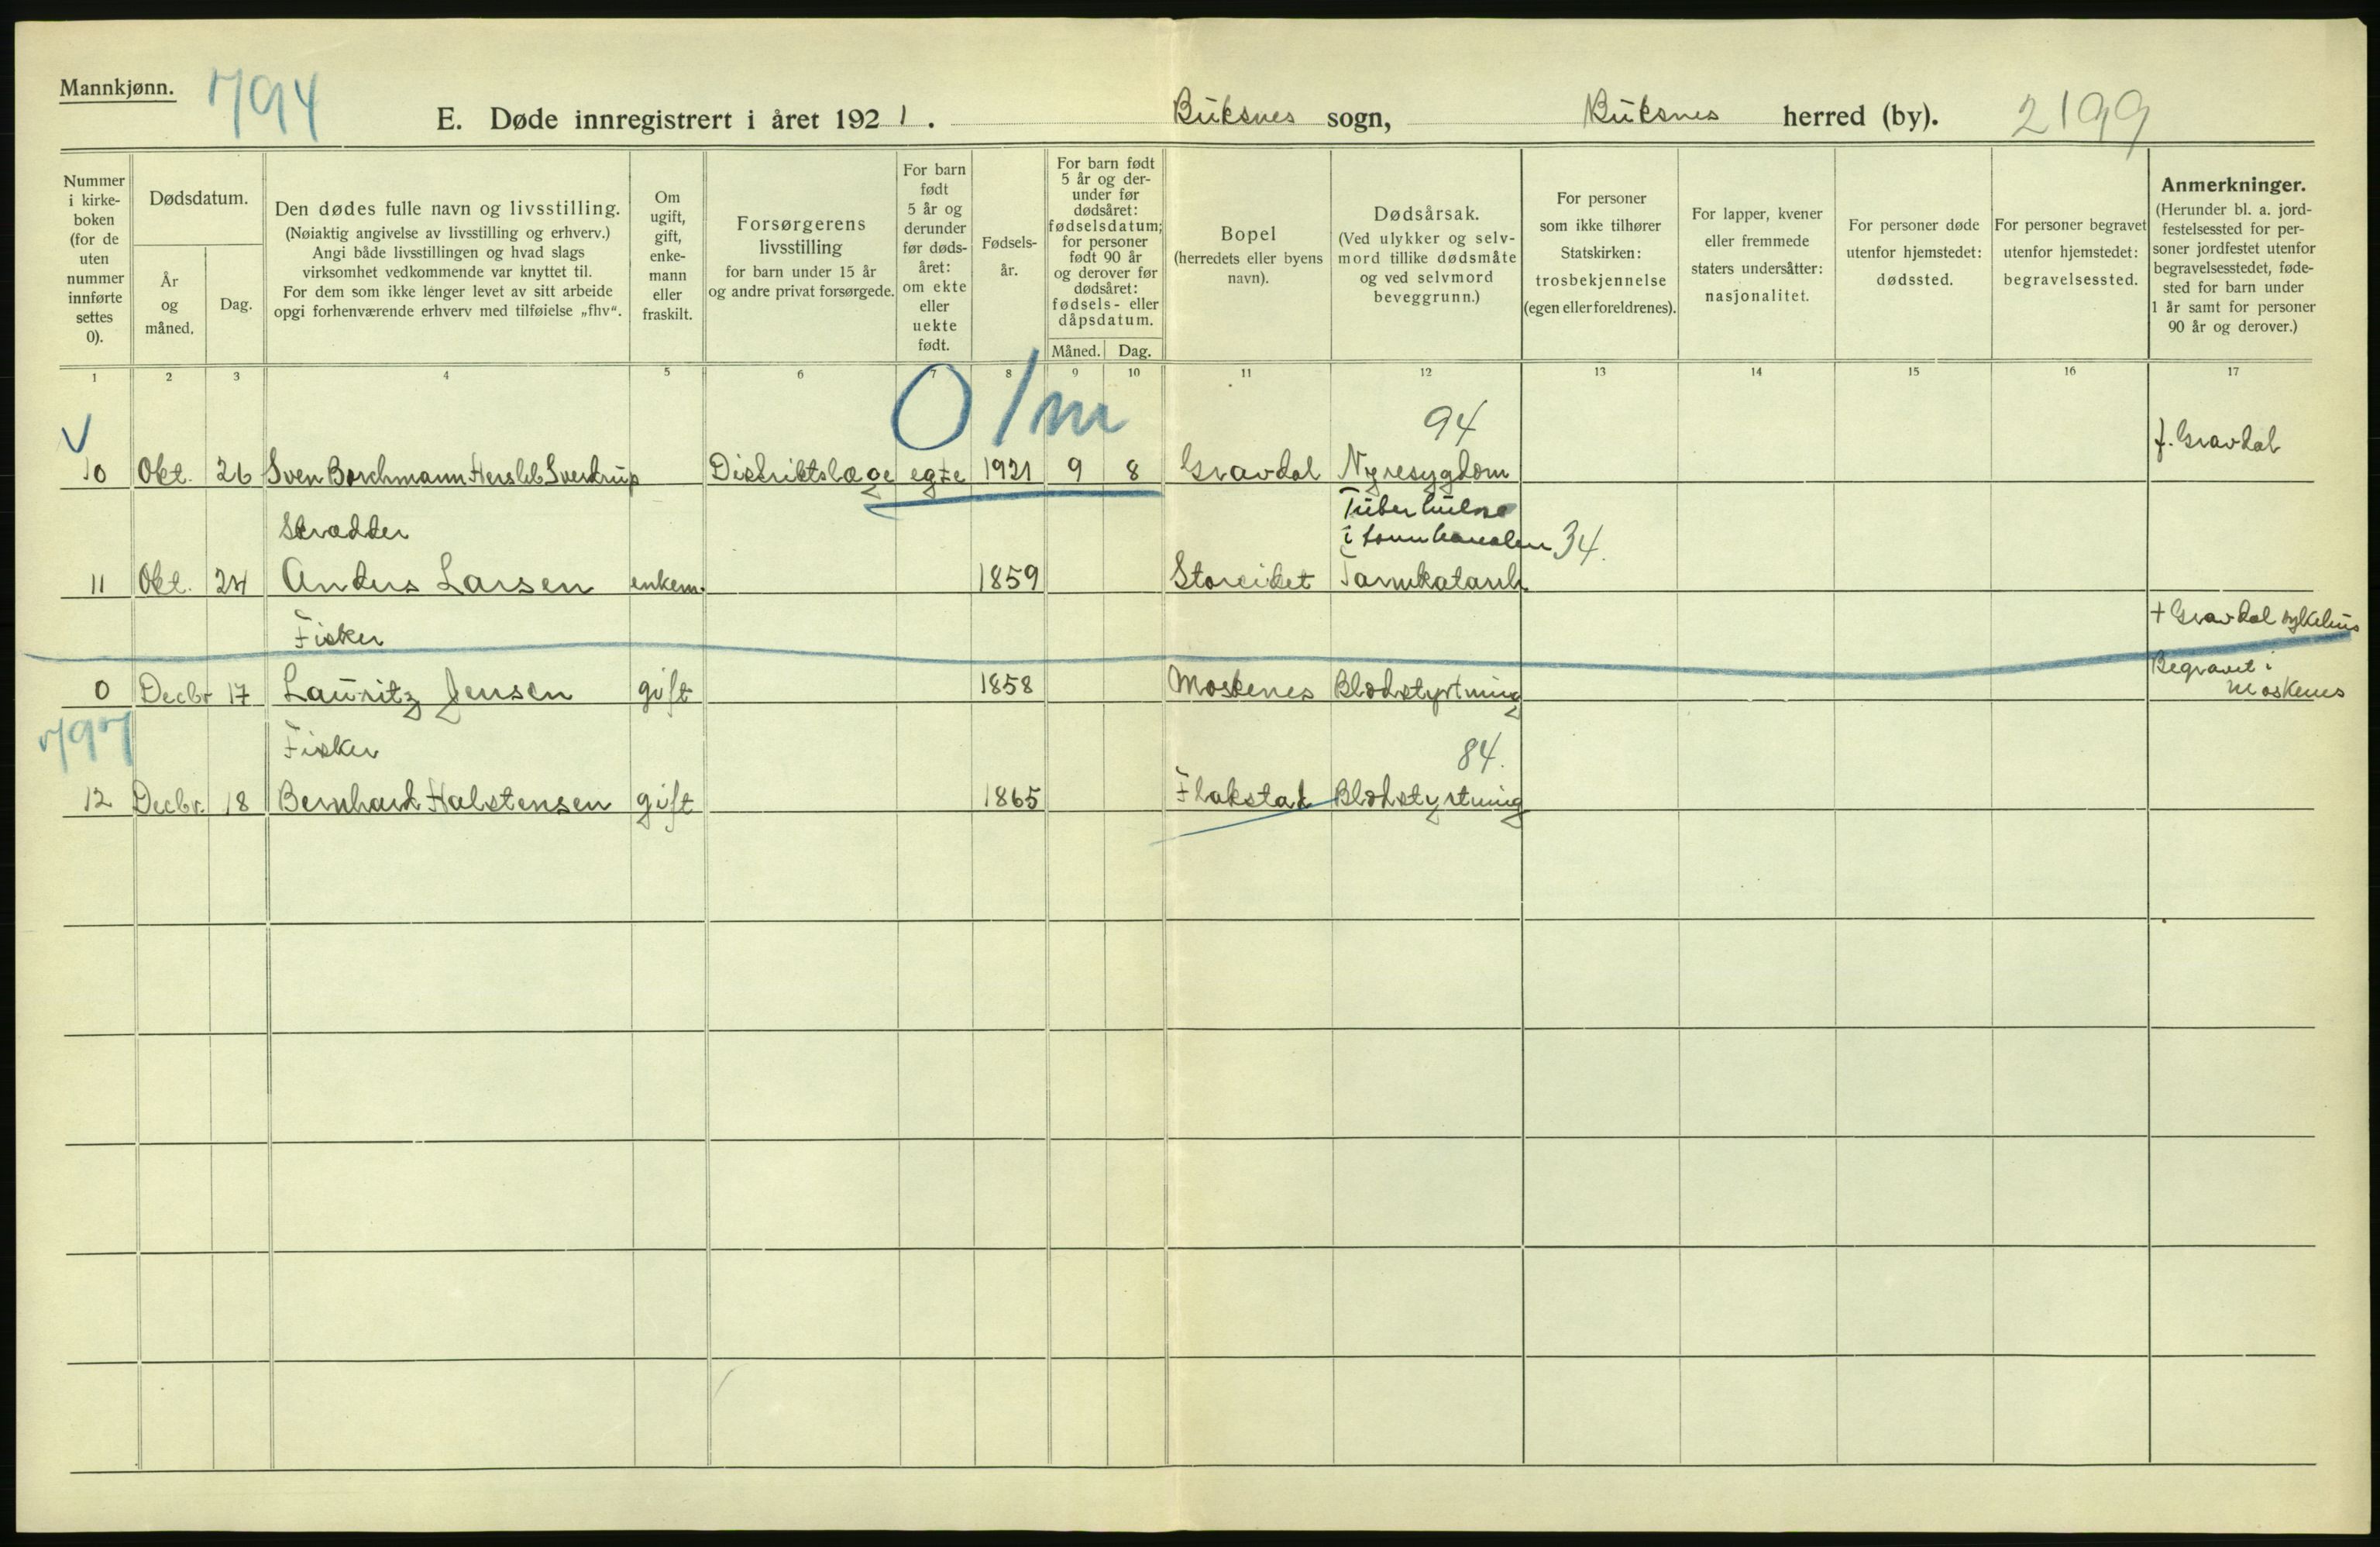 Mannkjønn.
794
E. Døde innregistrert i året 1921. Buksnes sogn, Buksnes herred (by). 2199
Nummer i kirke- boken (for de uten nummer innførte settes 0).
Dødsdatum.
År og måned.
Dag.
Den dødes fulle navn og livsstilling.
(Nøiaktig angivelse av livsstilling og erhverv.)
Angi både livsstillingen og hvad slags
virksomhet vedkommende var knyttet til.
For dem som ikke lenger levet av sitt arbeide
opgi forhenværende erhverv med tilføielse „fhv“.
Om ugift, gift, enke- mann eller fraskilt.
Forsørgerens
livsstilling
for barn under 15 år
og andre privat forsørgede.
For barn født 5 år og derunder før døds- året: om ekte eller uekte født.
Fødsels- år.
For barn født 5 år og der- under før dødsåret: fødselsdatum; for personer født 90 år og derover før dødsåret: fødsels- eller dåpsdatum.
Måned. Dag.
Bopel
(herredets eller byens
navn).
Dødsårsak.
(Ved ulykker og selv-
mord tillike dødsmåte
og ved selvmord
beveggrunn.)
For personer
som ikke tilhører
Statskirken:
trosbekjennelse
(egen eller foreldrenes).
For lapper, kvener
eller fremmede
staters undersåtter:
nasjonalitet.
For personer døde
utenfor hjemstedet:
dødssted.
For personer begravet
utenfor hjemstedet:
begravelsessted.
Anmerkninger.
(Herunder bl. a. jord-
festelsessted for per-
soner jordfestet utenfor
begravelsesstedet, føde-
sted for barn under
1 år samt for personer
90 år og derover.)
1 2 3 4 5 6 7 8 9 10 11 12 13 14 15 16 17
0 1 m
94
f. Gravdal
10 Okt. 26 Sven Borchmann Hersleb Sverdrup Distriktslæge egte 1921 9 8 Gravdal Nyresygdom
Skrædder
Tuberkulose
i tarmkanalen 34.
11 Okt. 24 Anders Larsen enkem. 1859 Storeidet Tarmkatarrh
Fisker
+ Gravdal sykehus
Begravet i
Moskenes
0 Decbr 17 Lauritz Jensen gift 1858 Moskenes Blodstyrtning
797
Fisker
84.
12 Decbr. 18 Bernhard Halstensen gift 1865 Flakstad Blodstyrtning